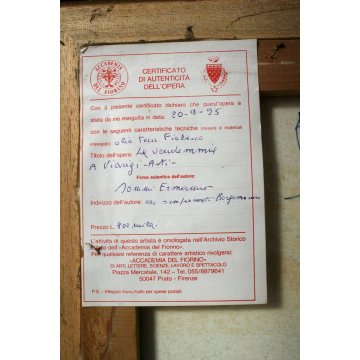 ACCADEMIA DEL FIORINO
CERTIFICATO
DI AUTENTICITÀ
DELL'OPERA
Con il presente certificato dichiaro che quest'opera è
stata da me eseguita in data: 20-9-95
con le seguenti caratteristiche tecniche (misure e materiali
impiegati) olio
Titolo dell'opera: La Vendemmia
A
Firma autentica dell'autore:
Indirizzo dell'autore:
Prezzo L.
L'attività di questo artista è omologata nell'Archivio Storico
dell'«Accademia del Fiorino»
Per qualsiasi referenza di carattere artistico rivolgersi:
«ACCADEMIA DEL FIORINO»
DI ARTI, LETTERE, SCIENZE, LAVORO E SPETTACOLO
Piazza Mercatale, 142 - Tel. 055/8879641
50047 Prato - Firenze
P.S. - Allegare francobollo per spese postali.